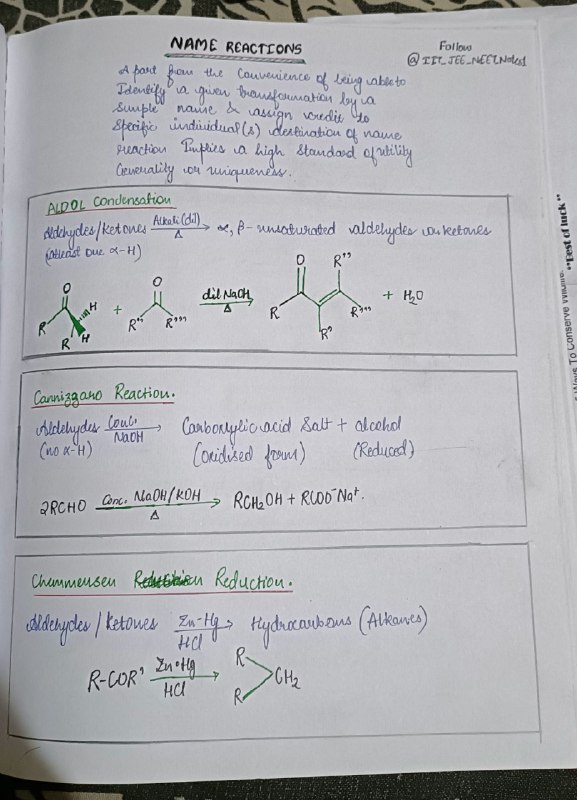 NAME REACTIONS
Follow
@IIT_JEE_NEET_Notes1
A part from the Convenience of being able to
Identify a given transformation by a
Simple name & assign credit to
Specific individual(s) destination of name
reaction Implies a high Standard of utility
Generality or uniqueness.
ALDOL Condensation
Aldehydes/Ketones Alkali(dil) Δ → α, β-unsaturated aldehydes or ketones
(atleast one α-H)
O H H R R' + O R'' R''' dil NaOH Δ → O R R' R'' R''' + H₂O
Cannizzaro Reaction.
Aldehydes Conc. NaOH → Carboxylic acid Salt + alcohol
(no α-H) (Oxidised form) (Reduced)
2RCHO Conc. NaOH/KOH Δ → RCH₂OH + RCOO⁻Na⁺.
Clemmensen Reduction.
Aldehydes/Ketones Zn-Hg HCl → Hydrocarbons (Alkanes)
R-COR' Zn•Hg HCl → R R CH₂
"Best of luck"
Ways To Conserve